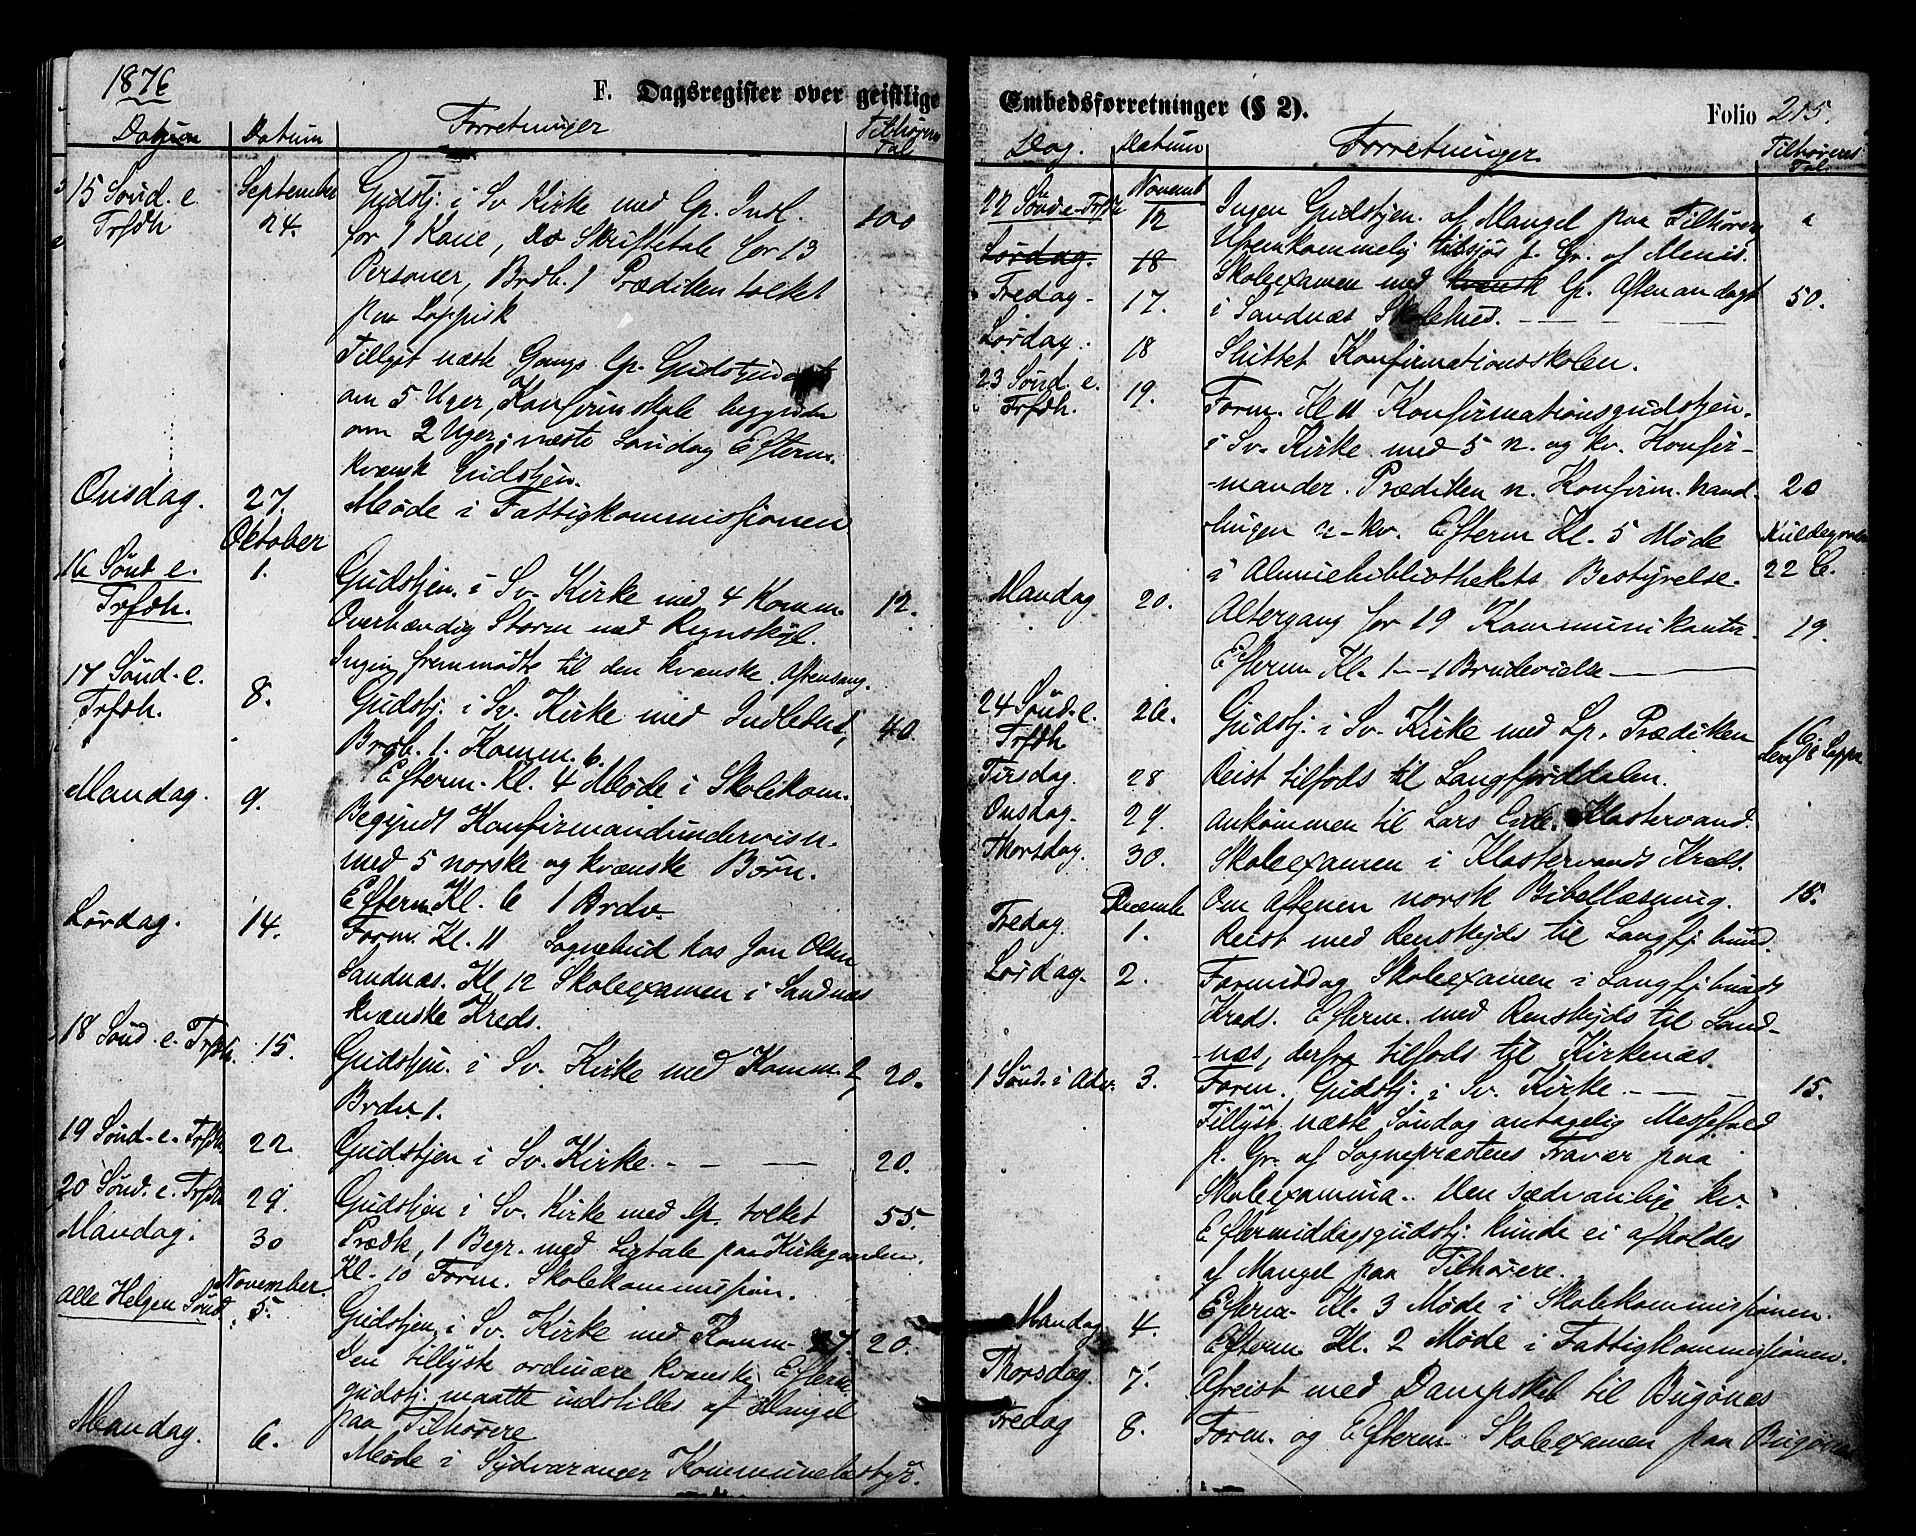 1876
F. Dagsregister over geistlige
Datum Datum Forretninger Tilhørere Tal
15 Sønd. e. Trfdh September 24. Gudstj. i Sv. Kirke med lp. Indl. 100
for 1 Kone, Do Skriftetale for 13
Personer, Brdh. 1 Prædiken tolket
paa Lappisk
Tillyst næste Gangs lp. Gudstjeneste
om 5 Uger, Konfirm.skole begynder
om 2 Uger, næste Søndag Efterm.
kvænsk Gudstjen.
Onsdag. 27. Møde i Fattigkommissionen
Oktober
16 Sønd. e. Trfdh. 1. Gudstjen. i Sv. Kirke med 4 Komm. 12.
Overhændig Storm med Regnskyl.
Ingen fremmødte til den kvænske Aftensang.
17 Sønd. e. Trfdh. 8. Gudstj. i Sv. Kirke med Indledns, 40
Brdb. 1. Komm. 6.
Efterm. Kl. 4 Møde i Skolekom.
Mandag. 9. Begyndt Konfirmandundervisn.
med 5 norske og kvænske Børn.
Efterm. Kl. 6 1 Brdv.
Lørdag. 14. Form. Kl. 11 Sognebud hos Jon Olsen
Sandnæs. Kl 12 Skoleexamen i Sandnæs
kvænske Kreds.
18 Sønd. e. Trfdh. 15. Gudstjen. i Sv. Kirke med Komm. 2 20.
Brdv. 1.
19 Sønd. e. Trfdh 22. Gudstjen i Sv. Kirke. - - — 20.
20 Sønd. e. Trfdh 29. Gudstjen i Sv. Kirke med lp. tolket 55.
Prædk, 1 Begr. med Ligtale paa Kirkegaarden.
Mandag. 30 Kl. 10 Form. Skolekommission.
November
Alle Helgen Sønd. 5. Gudstjen. i Sv. Kirke med Komm. 7. 20.
Den tillyste ordinære kvænske Efterm.
gudstj. maatte indstilles af Mangel
paa Tilhørere
Mandag. 6. Møde i Sydvaranger Kommunebestyr.
Embedsforretninger (§ 2).
Folio 215.
Dag. Datum Forretninger Tilhøreres Tal.
Novemb
22 Sønd. e. Trfdh 12 Ingen Gudstjen. af Mangel paa Tilhørere
Uframkommelig p. Gr. af Menis.
Lørdag. 18
Fredag - 17. Skoleexamen med kvænsk lp. Aftenandagt 50.
i Sandnæs Skolehus. — — —
Lørdag. 18 Sluttet Konfirmationsskolen.
23 Sønd. e. Trfdh. 19. Form. Kl 11 Konfirmationsgudstjen.
i Sv. Kirke med 5 n. og kv. Konfir-
mander. Prædiken n. Konfirm. hand- 20
lingen n - kv. Efterm Kl. 5 Møde Kuldegrader
i Almuebibliothekets Bestyrelse. 22 C.
Mandag 20. Altergang for 19 Kommunikanter. 19.
Efterm Kl. 1 - 1 Brudevielse —
24 Sønd. e. Trfdh 26. Gudstj. i Sv. Kirke med Lp. Prædiken 16.
Tirsdag. 28 Reist tilfods til Langfjorddalen.
Onsdag. 29. Ankommen til Lars Klostervand.
Thorsdag. 30. Skoleexamen i Klostervands Kreds.
Om Aftenen norsk Bibellæsning. 15.
Decembr
Fredag 1. Reist med Renskyds til Langfj.bund.
Lørdag. 2. Formiddag Skoleexamen i Langfj.bunds
Kreds. Efterm. med Renskyds til Sand-
næs, derfra tilfods til Kirkenæs.
1 Sønd. i Adv. 3. Form. Gudstj. i Sv. Kirke - - - 15.
Tillyst næste Søndag antagelig Messefald
p. Gr. af Sognepræstens Fravær paa
Skoleexamina. Den sædvanlige kv.
Eftermiddagsgudstj. kunde ei afholdes
af Mangel paa Tilhørere.
Mandag 4. Efterm. Kl. 3 Møde i Skolekommissionen.
Efterm Kl. 2 Møde i Fattigkommissionen.
Thorsdag. 7. Afreist med Dampskib til Bugønæs
Fredag 8. Form. og Efterm Skoleexamen paa Bugønæs